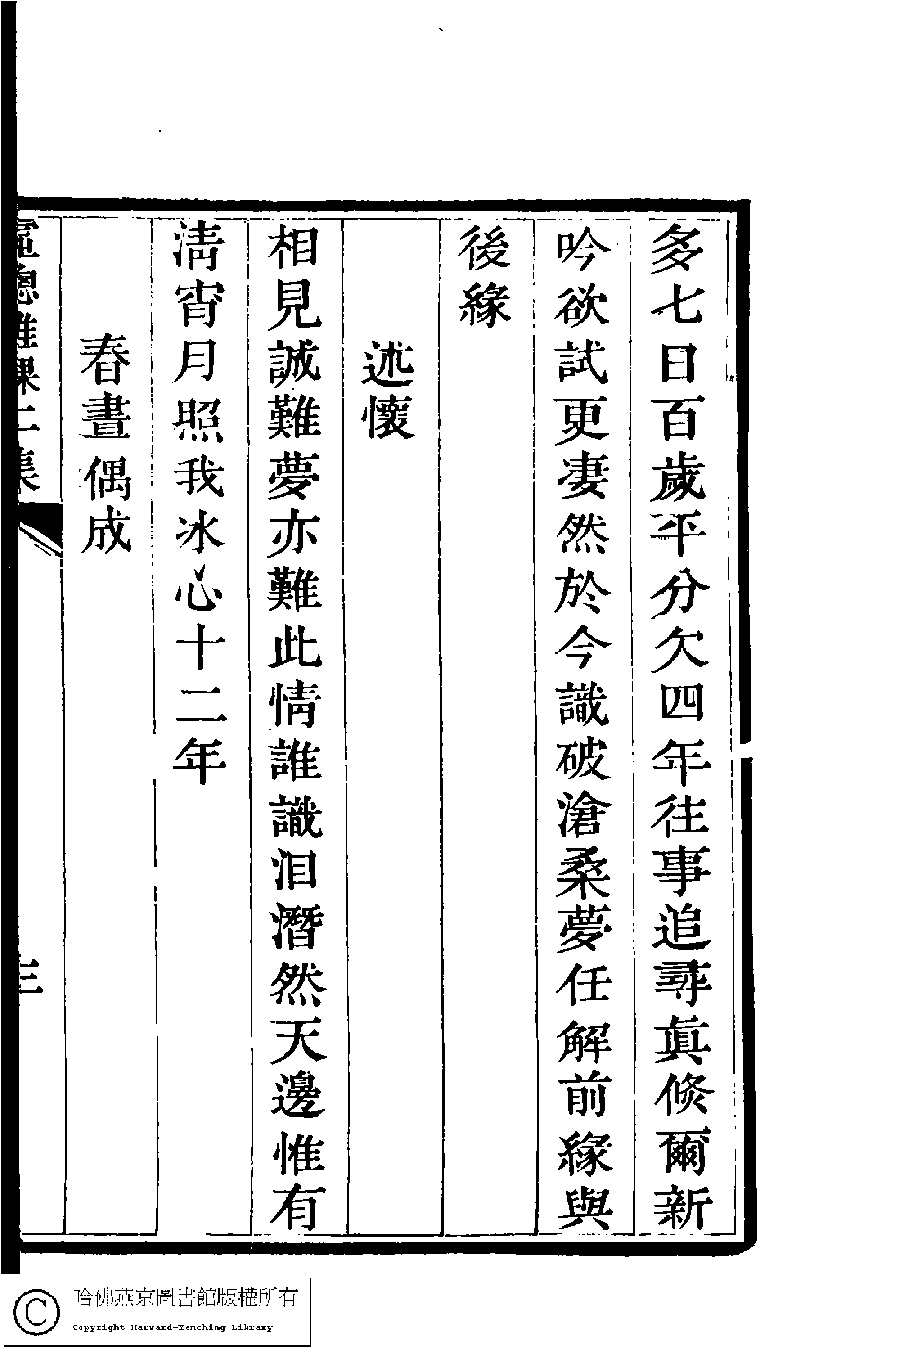 多七日百歲平分欠四年往事追尋眞倐爾新
吟欲試更凄然於今識破滄桑夢任解前緣與
後緣
述懷
相見誠難夢亦難此情誰識泪潛然天邊惟有
淸宵月照我冰心十二年
春晝偶成
二集
三
哈佛燕京圖書館版權所有
Copyright Harvard-Yenching Library